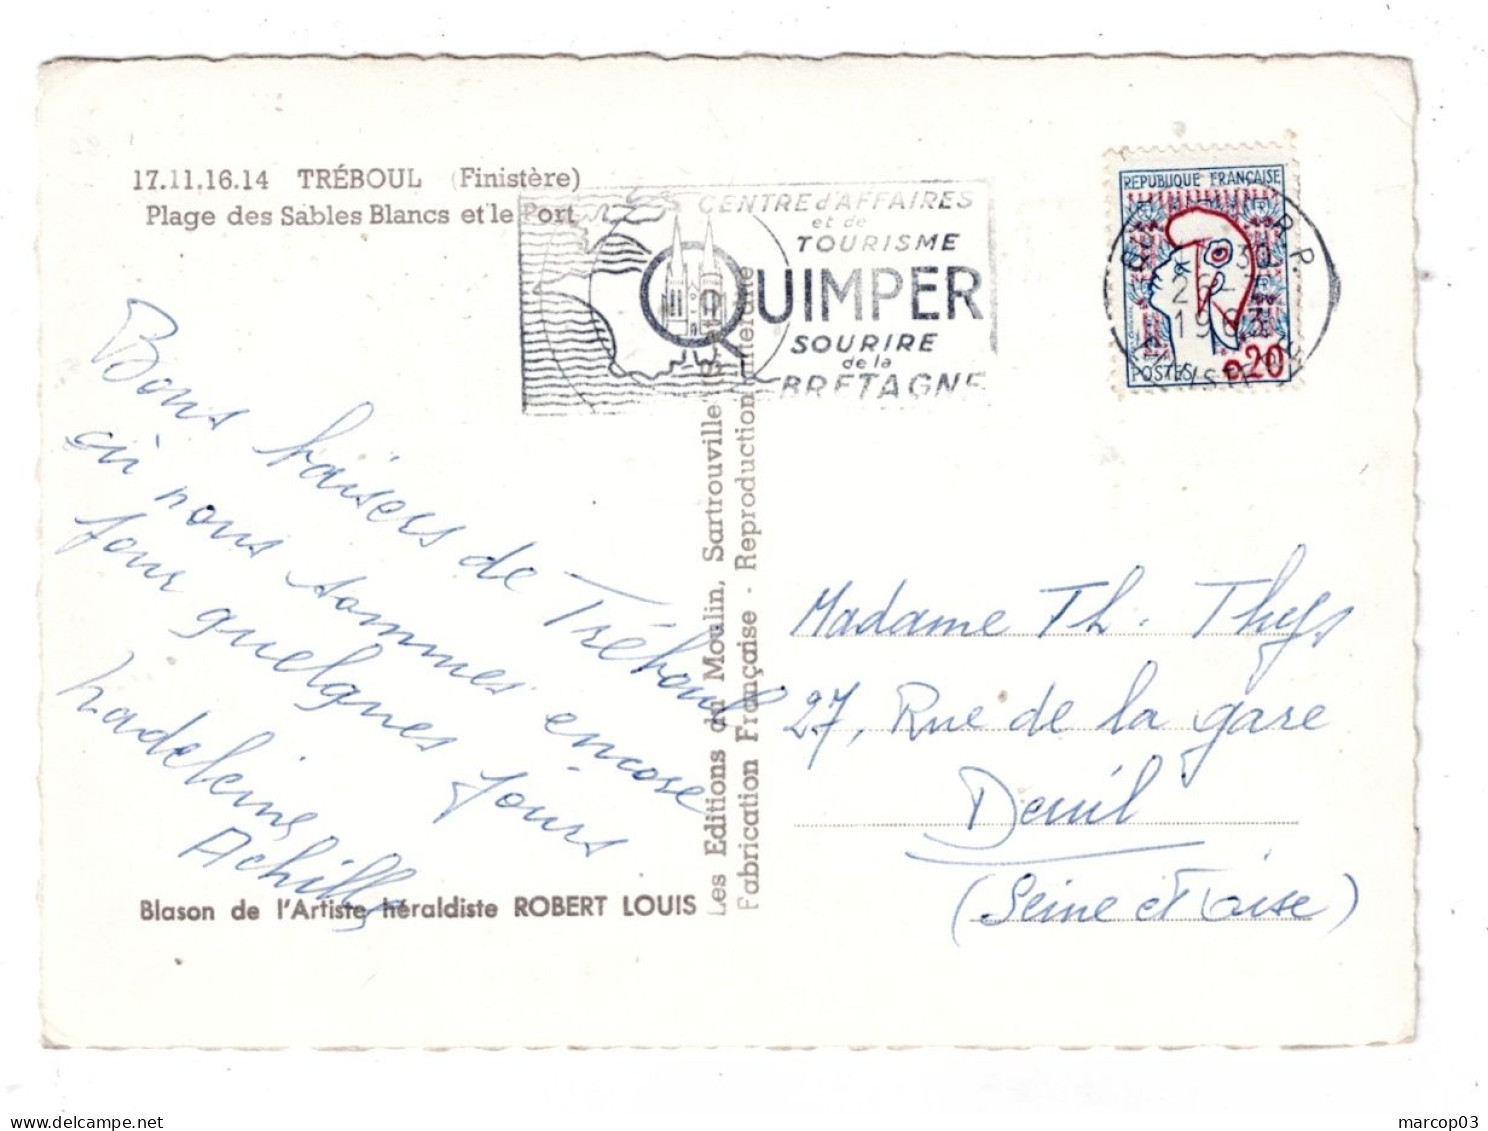 17.11.16.14 TRÉBOUL (Finistère)
Plage des Sables Blancs et le Port
CENTRE d'AFFAIRES
et de
TOURISME
QUIMPER
SOURIRE
de la
BRETAGNE
REPUBLIQUE FRANÇAISE
POSTES 0,20
R.P.
30
26-
1963
Bons baisers de Tréboul
où nous sommes encore
pour quelques jours
Madeleine
Achille
Blason de l'Artiste héraldiste ROBERT LOUIS
Les Editions du Moulin, Sartrouville
Fabrication Française - Reproduction interdite
Madame Th. Thys
27, Rue de la gare
Deuil
(Seine et Oise)
marcop03